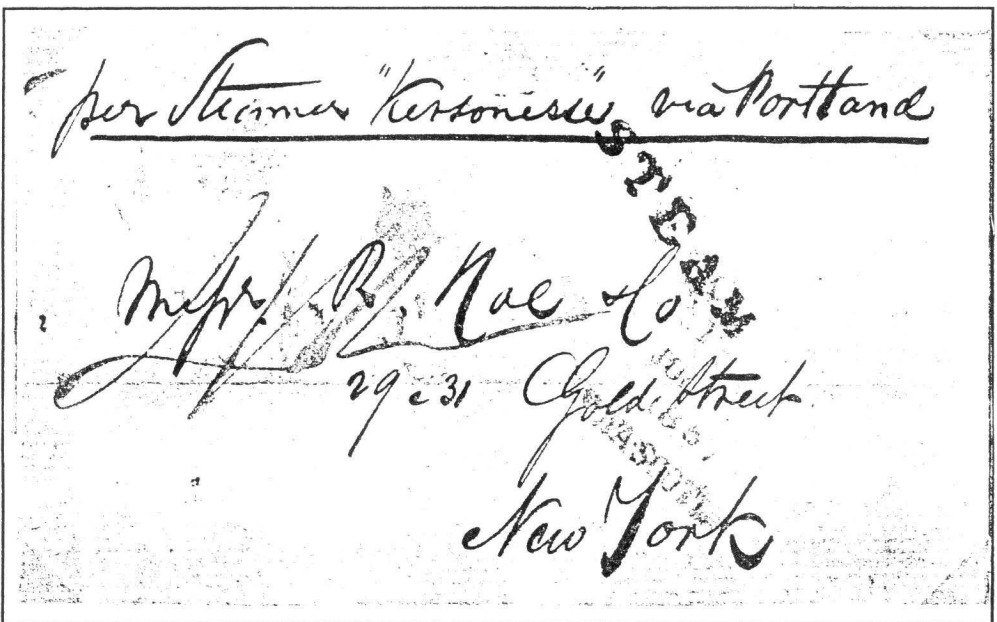 per Steamer "Kersonesse" via Portland
STEAM
Messrs. R. Hoe & Co
29 & 31 Gold Street
New York